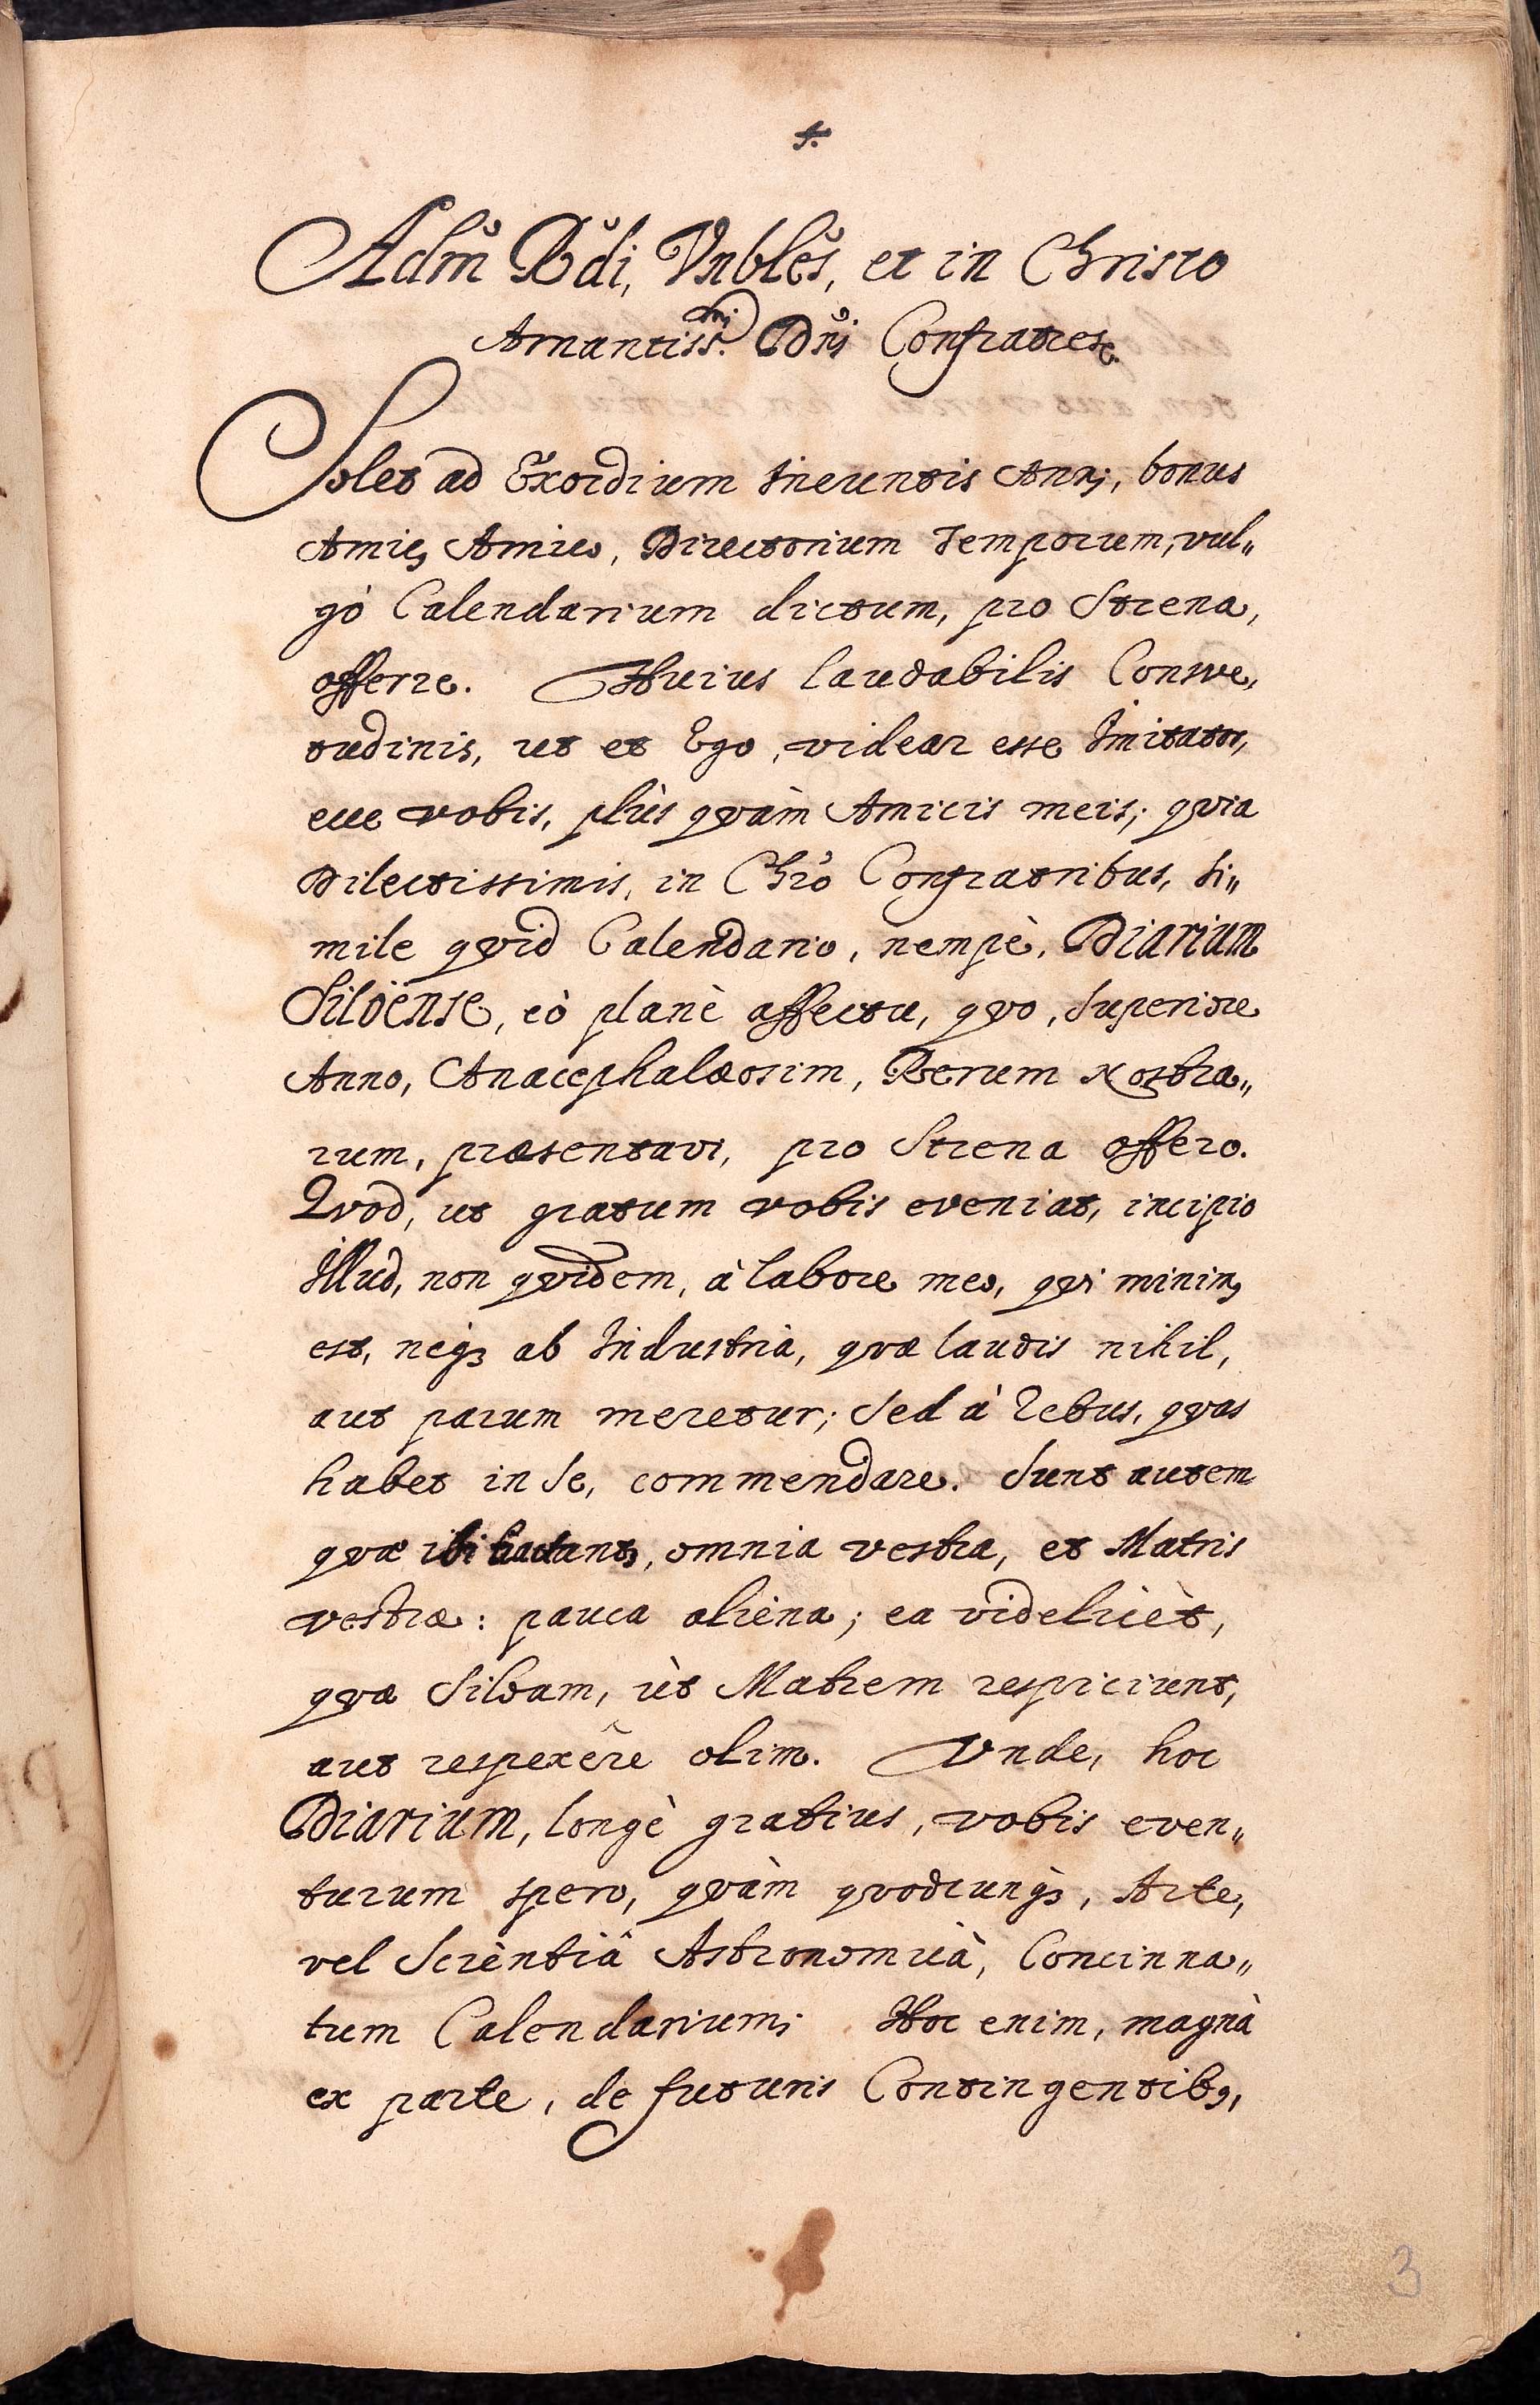 Adm̃ Rd̃i, Vnblẽs, et in Christo
Amantiss.mi Dñi Confratres.
Solet ad Exordium Ineuntis Anni, bonus
Amicꝰ Amico, Directorium Temporum, vul„
gò Calendarium dictum, pro Strena,
offerre. Huius laudabilis Consve„
tudinis, ut et Ego, videar esse Imitator,
ecce vobis, plùs qvàm Amicis meis; qvia
Dilectissimis, in Chr̃o Confratribus, si„
mile qvid Calendario, nempè, Diarium
Siloënse, eò planè affectu, qvo, Superiore
Anno, Anacephalæosim, Rerum Nostra„
rum, præsentavi, pro Strena offero.
Qvod, ut gratum vobis eveniat, incipio
Illud, non qvidem, à labore meo, qvi minimꝰ
est, neqꝫ ab Industrià, qvæ laudis nihil,
aut parum meretur; Sed à Rebus, qvas
habet in Se, commendare. Sunt autem
qvæ ibi tractantꝰ, omnia vestra, et Matris
vestræ: pauca aliena; ea videlicèt,
qvæ Siloam, ùt Matrem respiciunt,
aut respexêre olim. Vnde, hoc
Diarium, longè gratius, vobis even„
turum spero, qvàm qvodcunqꝫ, Arte,
vel Scièntiâ Astronomicà, Concinna„
tum Calendarium; Hoc enim, magnà
ex parte, de futuris Contingentibꝰ,
3